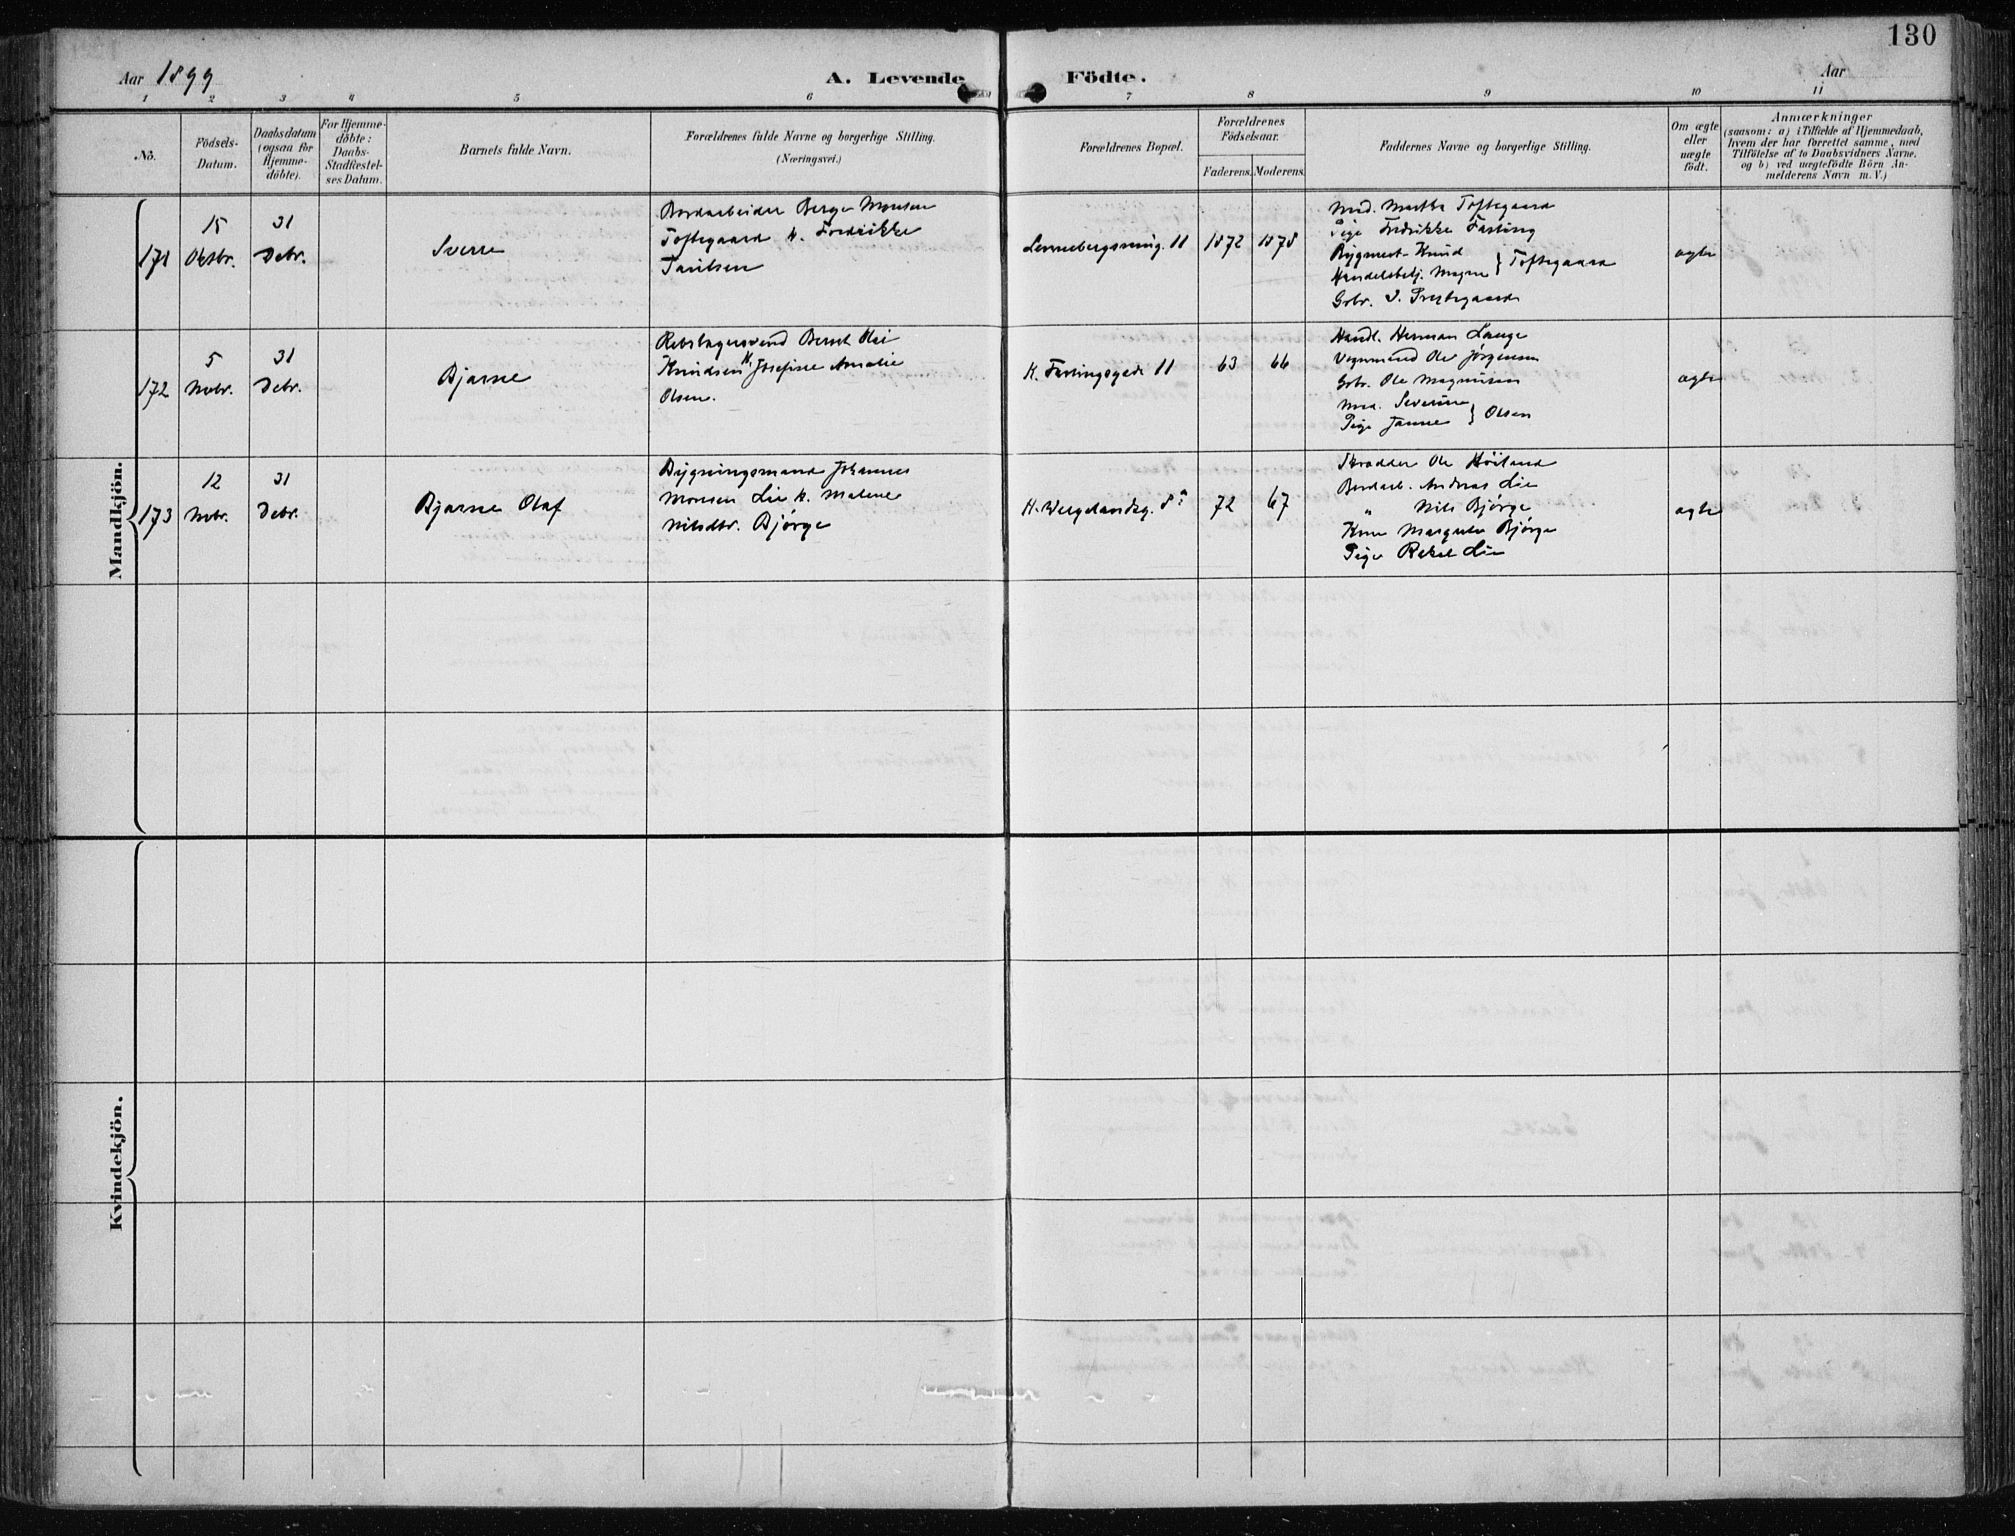 130
Aar 1899
A. Levende Födte.
Aar
1 2 3 4 5 6 7 8 9 10 11
No.
Födsels-
Datum.
Daabsdatum
(ogsaa for
Hjemme-
döbte).
For Hjemme-
döbte:
Daabs-
Stadfæstel-
ses Datum.
Barnets fulde Navn.
Forældrenes fulde Navne og borgerlige Stilling.
(Næringsvei.)
Forældrenes Bopæl.
Forældrenes
Födselsaar.
Faderens. Moderens.
Faddernes Navne og borgerlige Stilling.
Om ægte
eller
uægte
født.
Anmærkninger
(saasom: a) i Tilfælde af Hjemmedaab,
hvem der har forrettet samme, med
Tilföielse af to Daabsvidners Navne,
og b) ved uægtefödte Börn An-
melderens Navn m. V.)
Mandkjön.
171
15
Oktbr.
31
Debr.
Sverre
Bordarbeider Berge Monsen
Toftegaard H. Fredrikke
Paulsen
11
1872 1878
Mad. Marthe Toftegaard
Pige Fredrikke Fasting
Bygmest. Knud
Handelsbetj. Magne } Toftegaard
Gbr. I. Prestegaard
ægte
172
5
Novbr.
31
Debr.
Bjarne
Rebslagersvend Bernt Olai
Knudsen H. Josefine Amalie
Olsen.
K. Fastingsgade 11
63 66
Handl. Herman Lange
Vognmand Ole Jørgensen
Gbr. Ole Magnusen
Mad. Severine
Pige Janne } Olsen
ægte
173
12
Novbr.
31
Debr.
Bjarne Olaf
Bygningsmand Johannes
Monsen Lie H. Malene
Nilsdtr. Bjørge
H. Wergelandsg. 8
72 67
Skrædder Ole Høiland
Bordarb. Andreas Lie
" Nils Bjørge
Kone Margrete Bjørge
Pige Rakel Lie
ægte
Kvindekjön.